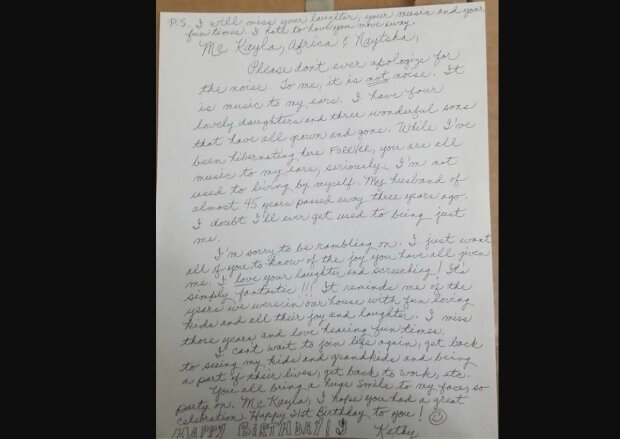 P.S. I will miss your laughter, your music and your
fun times. I hate to have you move away.
Me Kayla, Africa & Naytsha,
Please don't ever apologize for
the noise. To me, it is not noise. It
is music to my ears. I have four
lovely daughters and three wonderful sons
that have all grown and gone. While I've
been hibernating here you are all
music to my ears, seriously. I'm not
used to living by myself. My husband of
almost 45 years passed away three years ago.
I doubt I'll ever get used to being just
me.
I'm sorry to be rambling on. I just want
all of you to know of the joy you have all given
me. I love your laughter and screeching! It's
simply fantastic!!! It reminds me of the
years we were in our house with fun loving
kids and all their joy and laughter. I miss
those years and love hearing fun times.
I can't wait to join life again, get back
to seeing my kids and grandkids and being
a part of their lives, get back to work, etc.
You all bring a huge smile to my face, so
party on. Me Kayla, I hope you had a great
celebration. Happy 21st Birthday to you!
HAPPY BIRTHDAY!! Kathy